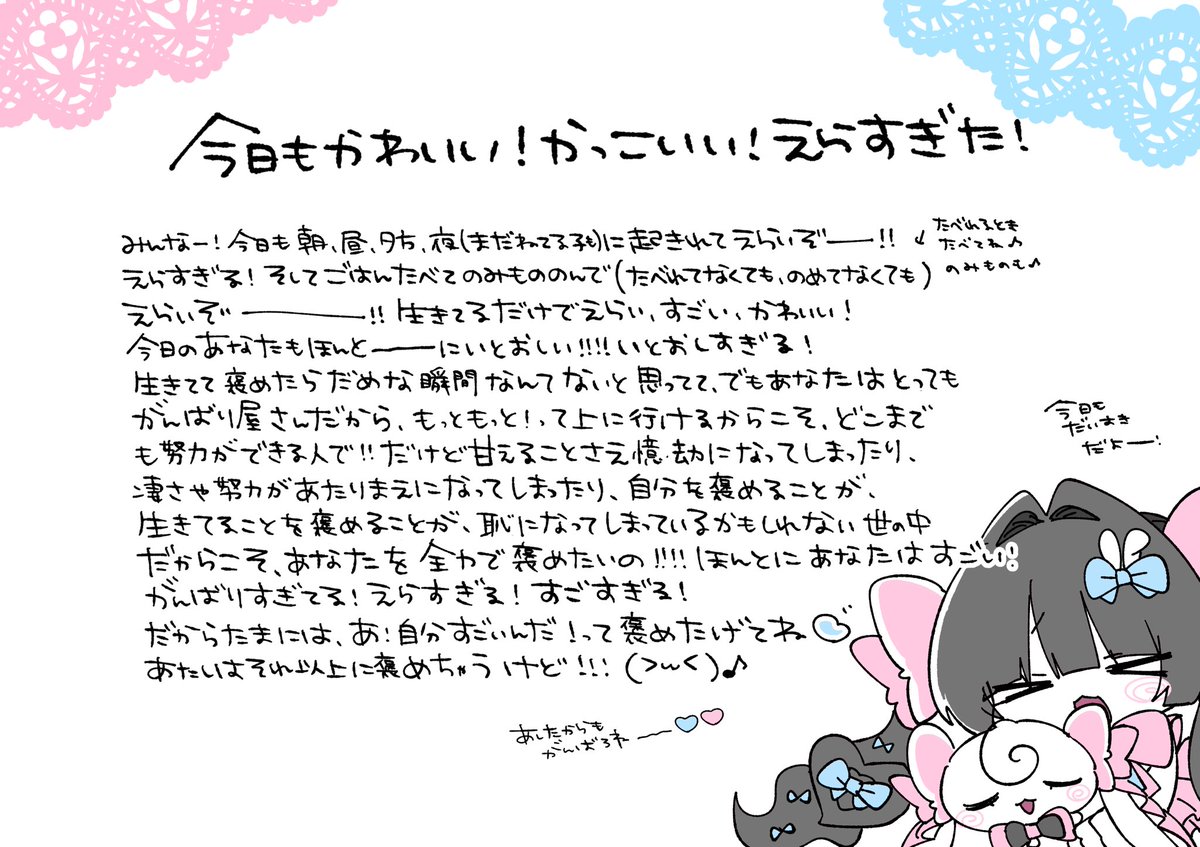 今日もかわいい！かっこいい！えらすぎた！
みんなー！今日も朝、昼、夕方、夜(まだねてる子も)に起きれてえらいぞー!!
たべれるとも
たべてね♪
のみものも♪
えらすぎる！そしてごはんたべてのみもののんで(たべれてなくても、のめてなくても)
えらいぞー!! 生きてるだけでえらい、すごい、かわいい！
今日のあなたもほんとーにいとおしい!!!!いとおしすぎる！
生きてて褒めたらだめな瞬間なんてないと思ってて、でもあなたはとっても
がんばり屋さんだから、もっともっと！って上に行けるからこそ、どこまで
も努力ができる人で!!だけど甘えることさえ億劫になってしまったり、
凄さや努力があたりまえになってしまったり、自分を褒めることが、
生きてることを褒めることが、恥になってしまっているかもしれない世の中
だからこそ、あなたを全力で褒めたいの!!!!ほんとにあなたはすごい！
がんばりすぎてる！えらすぎる！すごすぎる！
だからたまには、あ！自分すごいんだ！って褒めたげてね
あたいはそれ以上に褒めちゃうけど!!! (>ω<)♪
あしたからも
がんばろネー
今日も
だいすき
だよー！